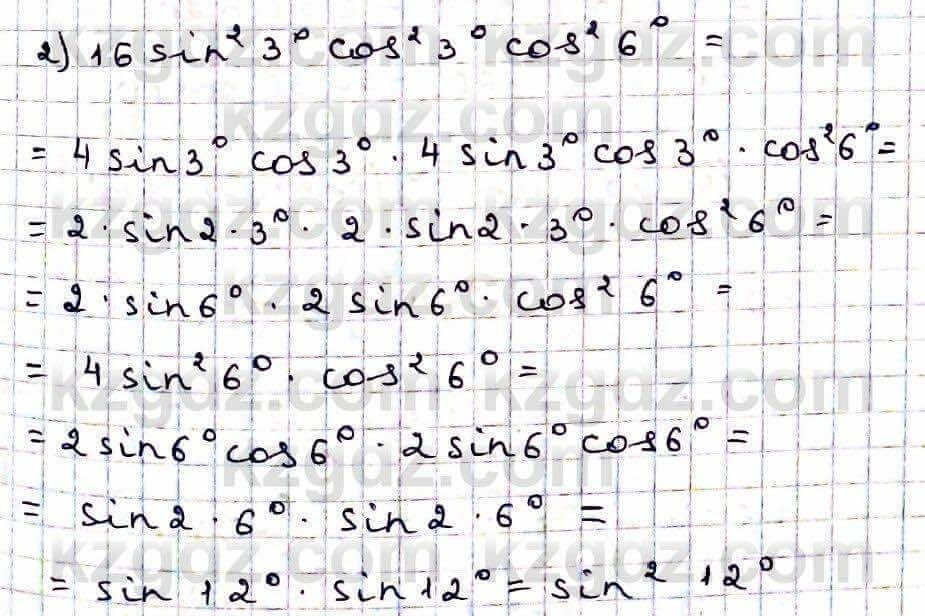 2) 16 sin² 3° cos² 3° cos² 6° =
= 4 sin 3° cos 3° · 4 sin 3° cos 3° · cos² 6° =
= 2 · sin 2 · 3° · 2 · sin 2 · 3° · cos² 6° =
= 2 · sin 6° · 2 sin 6° · cos² 6° =
= 4 sin² 6° · cos² 6° =
= 2 sin 6° cos 6° · 2 sin 6° cos 6° =
= sin 2 · 6° · sin 2 · 6° =
= sin 12° · sin 12° = sin² 12°
kzgdz.com
kzgdz.com
kzgdz.com
kzgdz.com
kzgdz.com
kzgdz.com
kzgdz.com